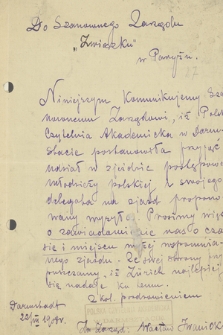 Do Szanownego Zarządu
„Związku"
w Paryżu.
Niniejszym komunikujemy Sza-
nownemu Zarządowi, iż Polska
Czytelnia Akademicka w Darm-
stacie postanowiła przyjąć
udział w zjeździe postępowej
młodzieży polskiej i swojego
delegata na zjazd propono-
wany wysyła. Prosimy więc
o zawiadamianie nas o cza-
sie i miejscu wyżej wspomnia-
nego zjazdu. Ze swej strony
puszczamy, iż Zürich najlepiej
się nadaje ku temu.
Z kol. pozdrowieniem
Darmstadt